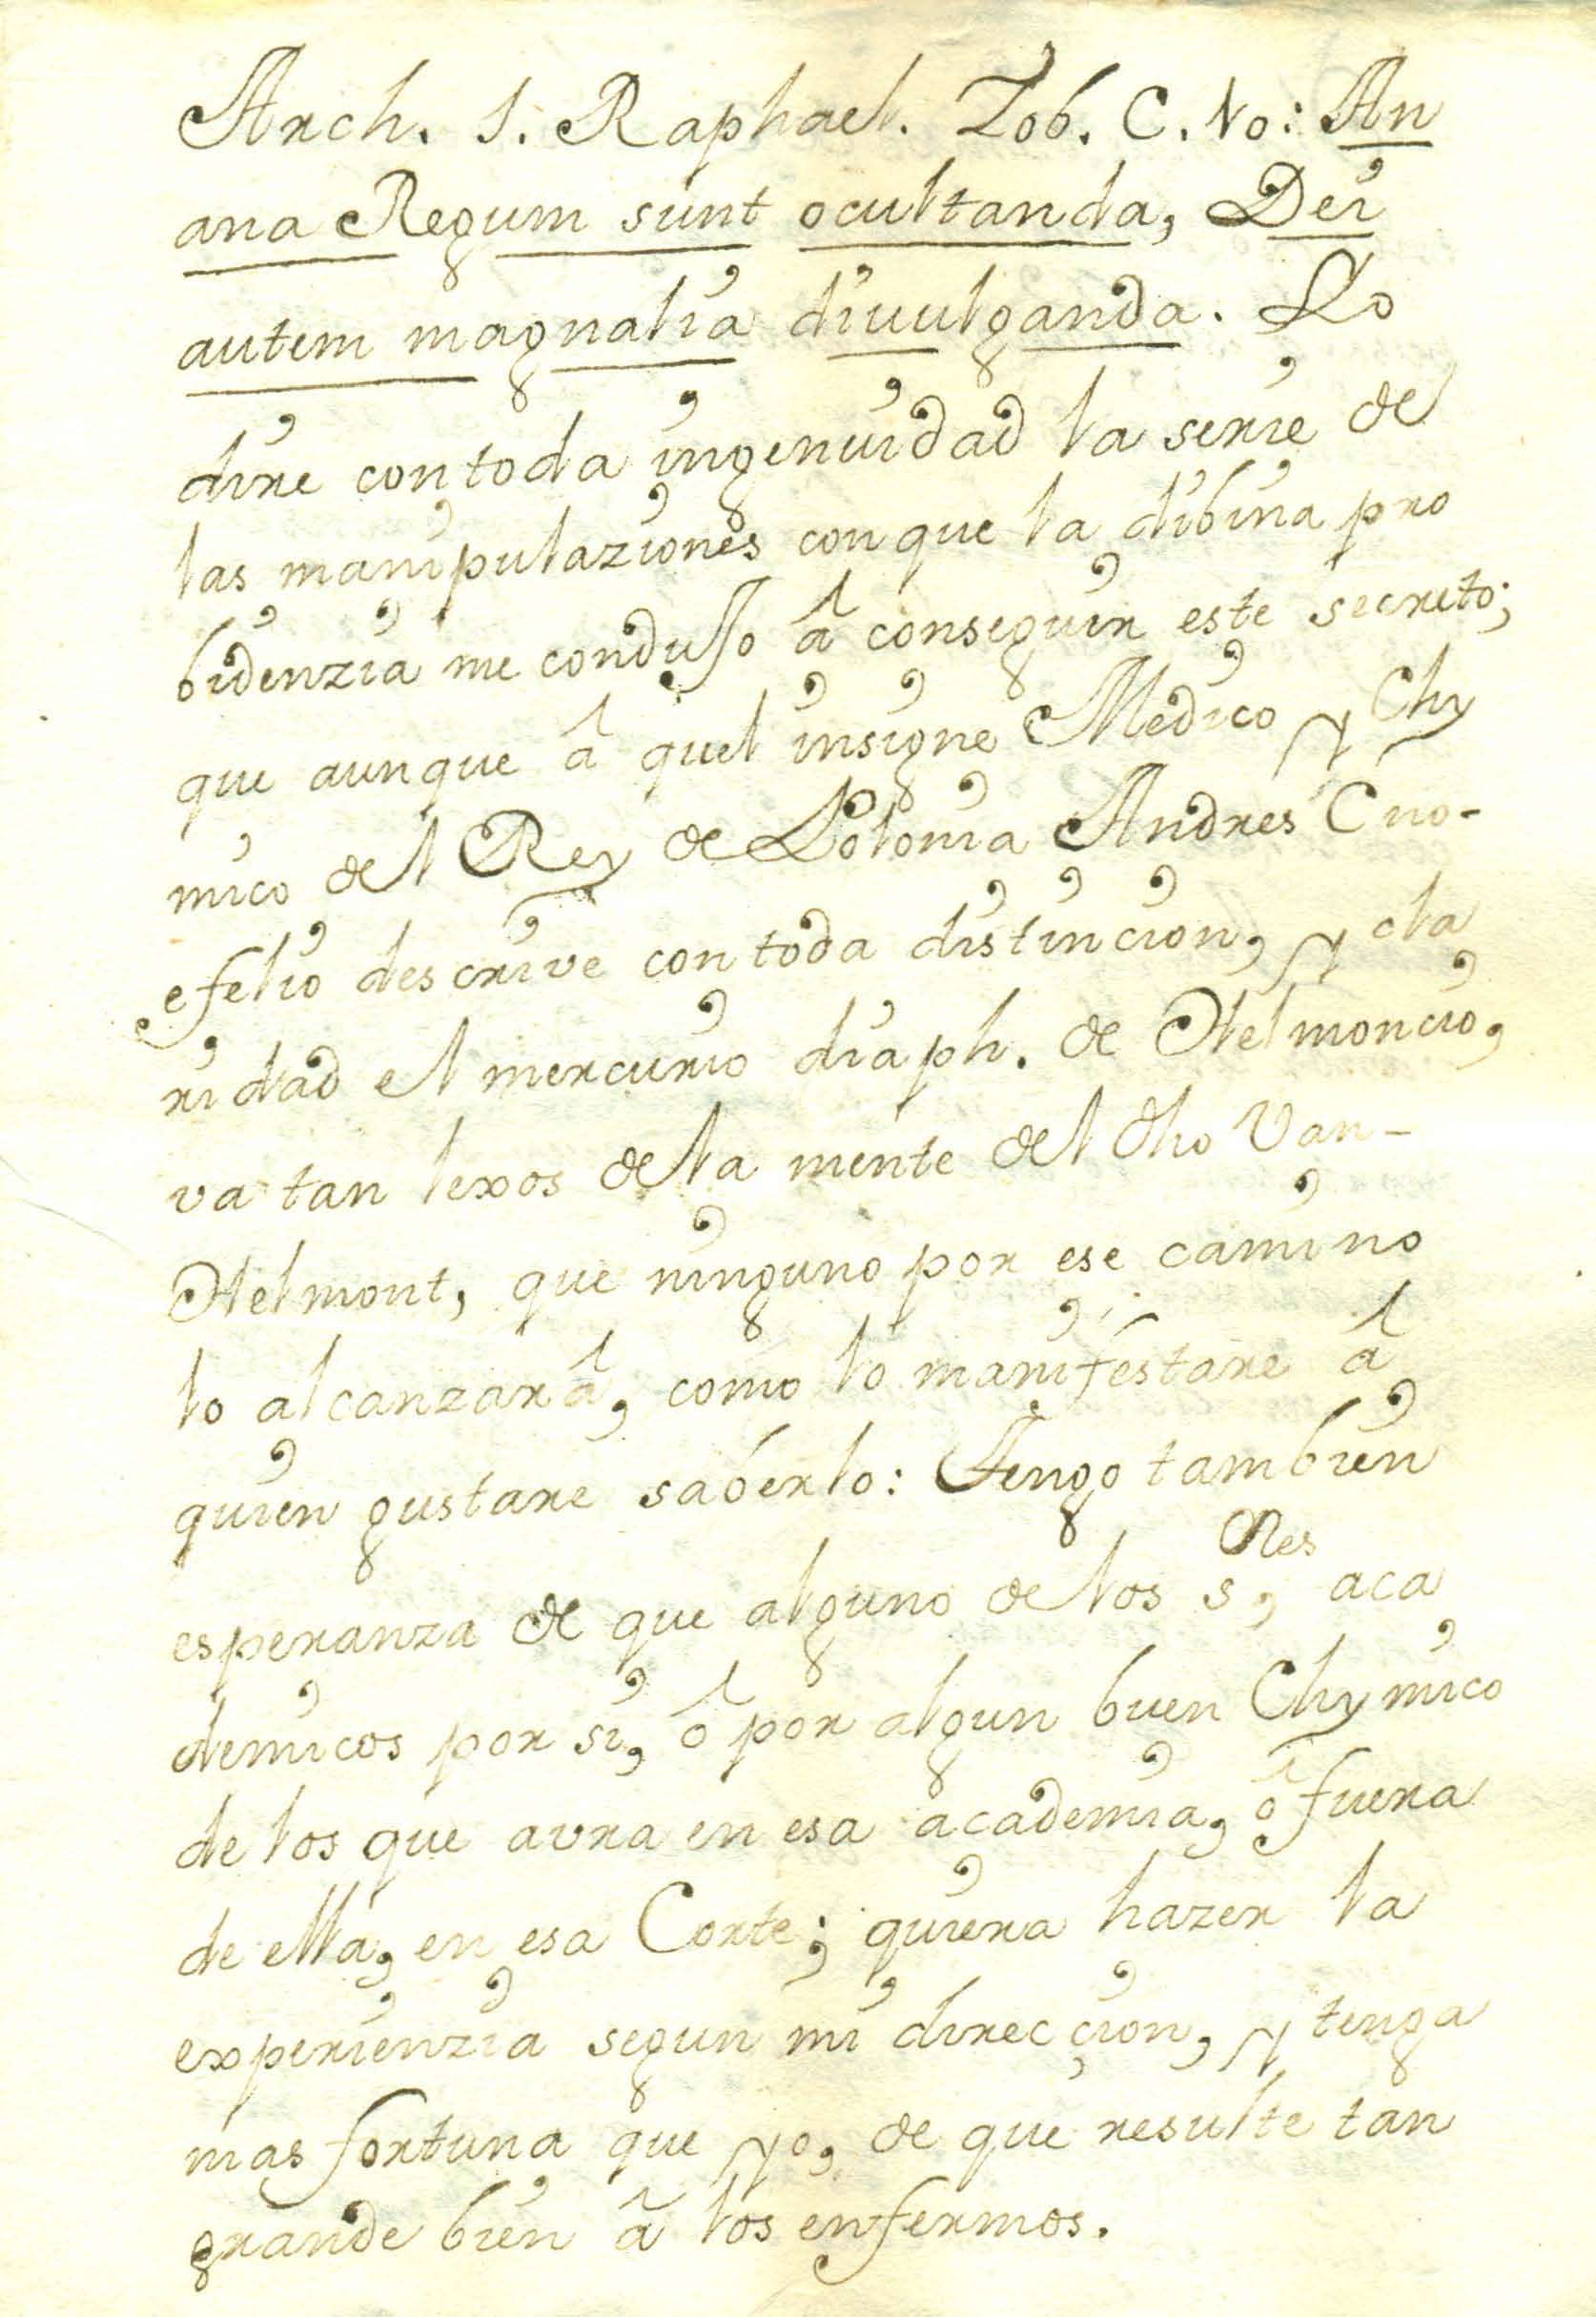 Arch. S. Raphael. Tob. C. No: Ar
cana Regum sunt ocultanda, Dei
autem magnalia divulganda. Yo
dire con toda ingenuidad la serie de
las manipulaziones con que la dibina pro
bidenzia me condujo â conseguir este secreto;
que aunque â quel insigne Medico y Chy
mico del Rey de Polonia Andres Cno-
efelio descrive con toda distincion, y cla
ridad el mercurio diaph. de Helmoncio,
va tan lexos de la mente del dho Van-
Helmont, que ninguno por ese camino
lo alcanzarâ, como lo manifestare â
quien gustare saberlo: Tengo tambien
esperanza de que alguno de los s,res aca
demicos por si, ô por algun buen Chymico
de los que avra en esa academia, ô fuera
de ella, en esa Corte; quiera hazer la
experienzia segun mi direcçion, y tenga
mas fortuna que yo, de que resulte tan
grande bien â los enfermos.